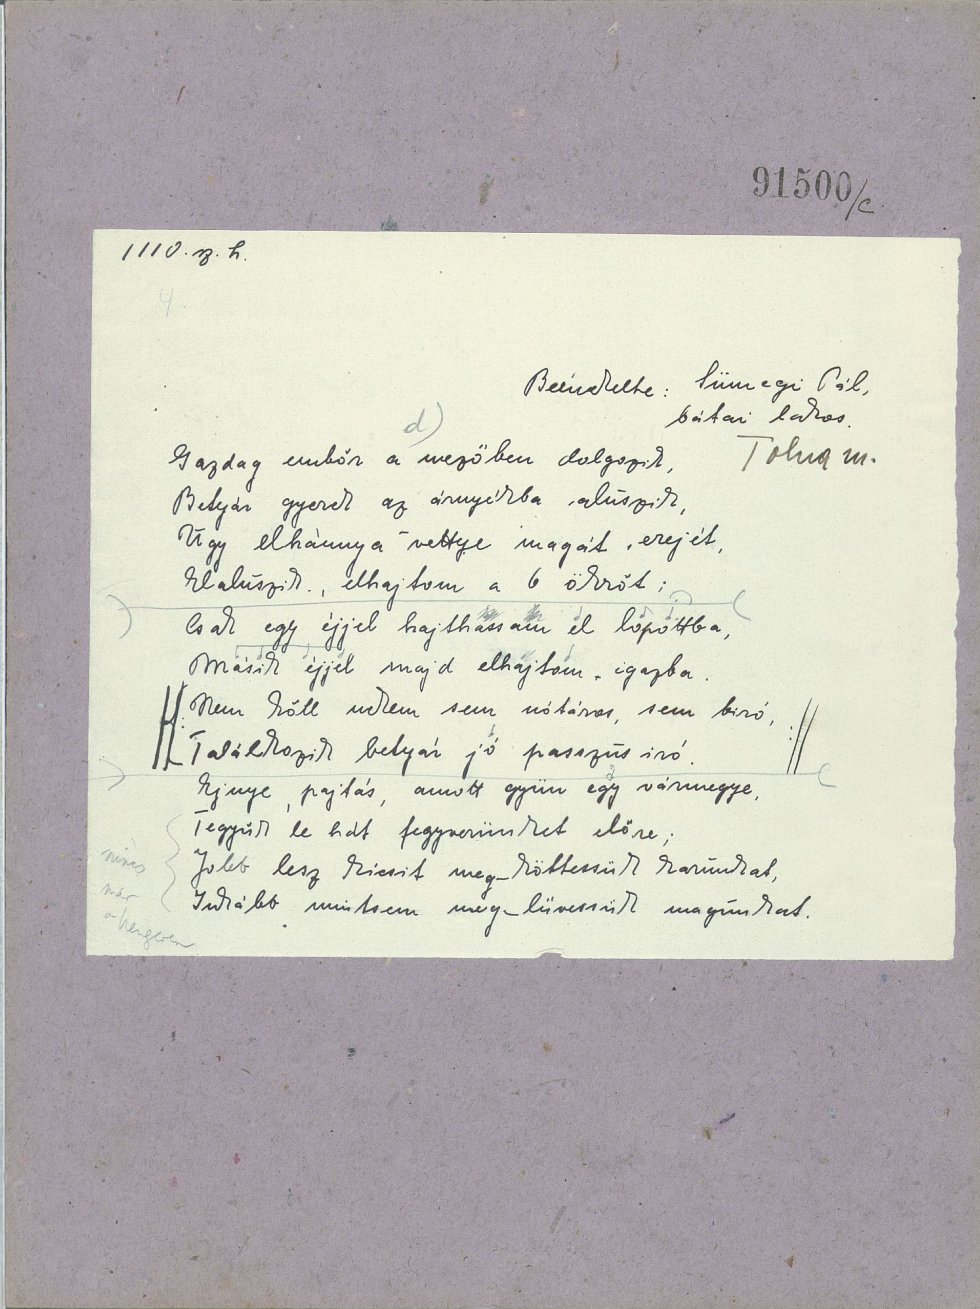 91500/c
1110. sz. h.
4
Beénekelte: Sümegi Pál,
bátai lakos.
Tolna m.
d)
Gazdag embör a mezőben dolgozik,
Betyár gyerek az árnyékba aluszik,
Úgy elhánnya-vettye magát, erejét,
Elaluszik, elhajtom a 6 ökröt;
Csak egy éjjel hajthassam el löpöttba,
Másik éjjel majd elhajtom igazba.
||: Nem köll nekem sem nótáros, sem biró, :||
Találkozik betyár jó passzus iró.
Ejnye, pajtás, amott gyün egy vármegye,
Tegyük le hát fegyverünket előre;
Jobb lesz kicsit meg-köttessük karunkat,
Inkább mintsem meg-lüvessük magunkat.
nincs
már
a hengeren